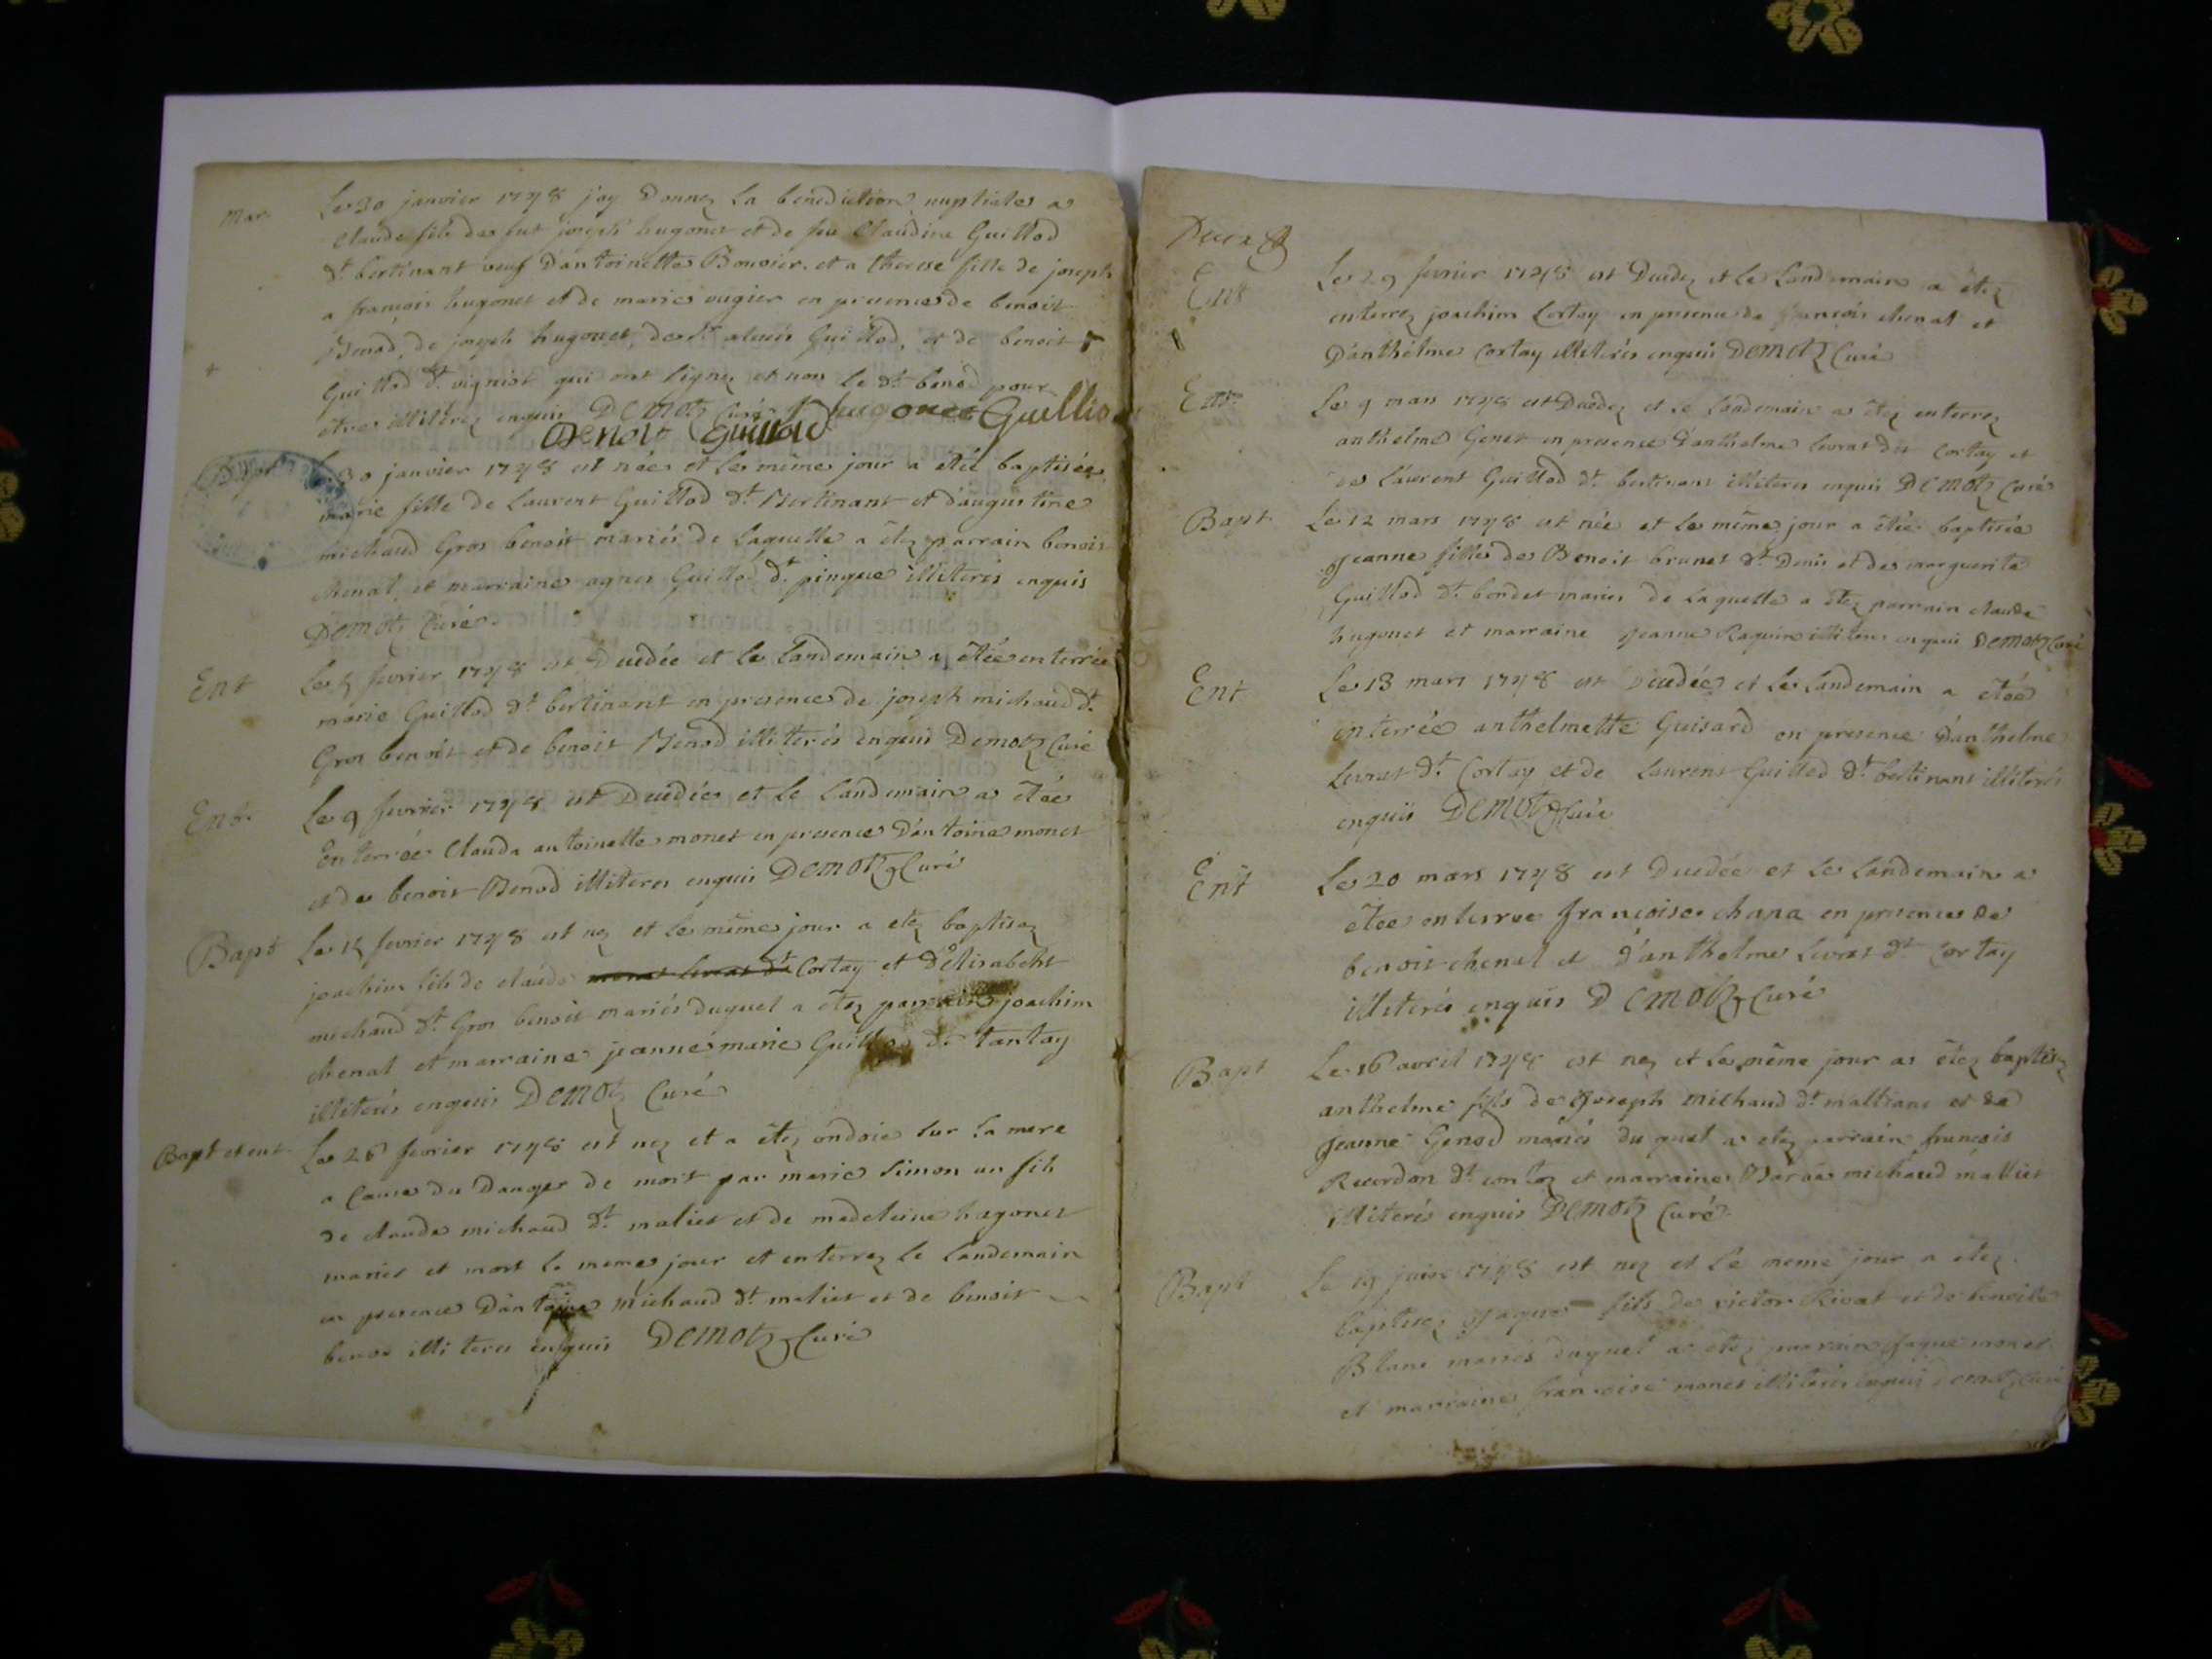 Mar.
Le 30 janvier 1748 j'ay Donnez La bénédiction nuptiales a
Claude fils des fut joseph hugonet et de feu Claudine Guillod
dt. bertinant veuf D'antoinette Bouvier. et a therese fille de joseph
a françois hugonet et de marie vugier en presences de benoit
Benod, de joseph hugonet, de Sr. alexis Guillod, et de benoit
Guillod dt. vigniot qui ont signez et non le dt. benod pour
etres illiterez enquis Demotz Curé J hugonet Guillio
Benoit Guillod
Bapt
Le 30 janvier 1748 est née et les même jour a etée baptisée
marie fille de Laurent Guillod dt. Bertinant et d'augustine
michaud Gros benoit mariés de laquelle a étez parrain benoit
chenal, et marraine agnes Guillod dt. pingue illiterés enquis
Demotz Curé.
Ent
Les 5 fevrier 1748 est Ducedée et le landemain a etée enterrée
marie Guillod dt. bertinant en presences de joseph michaud dt.
Gros benoit et de benoit Benod illiterés enquis Demotz Curé
Ent.
Les 9 fevrier 1748 est Ducedée et le landemain a etée
Enterrée Clauda antoinette monet en presences D'antoine monet
et de benoit Benod illiteres enquis Demotz Curé
Bapt
Le 15 fevrier 1748 est nez et le même jour a etez baptisez
joachim fils de claude Cortay et d'Elisabeht
michaud dt. Gros benoit mariés duquel a étez parrain joachim
chenal et marraine jeanne marie Guillod dt. tantay
illiterés enquis Demotz Curé
Bapt et ent.
Le 26 fevrier 1748 est nez et a étez ondoié sur la mere
a Cause du Danger de mort par marie simon un fils
de claude michaud dt. maliet et de madeleine hugonet
mariés et mort le memes jour et enterrez le landemain
en presence D'antoine michaud dt. maliet et de benoit
benod illiteres enquis Demotz Curé
Ent
Les 29 fevrier 1748 est Ducedez et le Landemain a étez
enterrez joachim Cortay en presence de françois chenal et
D'anthelme Cortay illiterés enquis Demotz Curé
Ent.
Le 9 mars 1748 est Ducedez et le landemain a étez enterrez
anthelme Genet en presence d'anthelme levrat dit Cortay et
de Laurent Guillod dt. bertinant illiteres enquis Demotz Curé
Bapt.
Le 12 mars 1748 est née et le même jour a etée baptisée
Jeanne filles de Benoit brunet dt. Denis et des marguerite
Guillod dt. bondet mariés de laquelle a étez parrain claude
hugonet et marraine Jeanne Raquin illiteres enquis Demotz Curé
Ent
Le 13 mars 1748 est Ducedée et le landemain a etée
enterrée anthelmette Guisard en presence d'anthelme
Levrat dt. Cortay et de Laurent Guillod dt. bertinant illiterés
enquis Demotz Curé
Ent
Le 20 mars 1748 est Ducedée et le landemain a
étée enterree françoise chapa en presences de
benoit chenal et d'anthelme Levrat dt. Cortay
illiterés enquis Demotz Curé
Bapt
Le 16 avril 1748 est nez et le même jour a étez baptisez
anthelme fils de Joseph michaud dt. mallians et de
Jeanne Genod mariés du quel a etez parrain françois
Recordon dt. et marraine michaud malliet
illiterés enquis Demotz Curé
Bapt
Le 19 juin 1748 est nez et le meme jour a étez
baptisez Jaques fils de victor Rivat et de benoite
Blanc mariés duquel a étez parrain Jaques monet
et marraine françoise monet illiterés enquis Demotz Curé